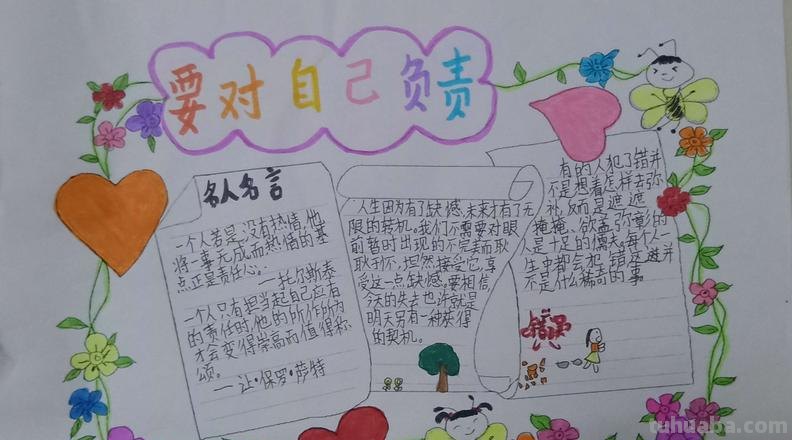 要对自己负责
名人名言
一个人若是没有热情,他
将一事无成而热情的基
点正是责任心。
——托尔斯泰
一个只有担当起自己应有
的责任时,他的所作所为
才会变得崇高而值得称
颂。
——让·保罗·萨特
人生因为有了缺憾,未来才有了无
限的转机。我们不需要对眼
前暂时出现的不完美而耿
耿于怀,坦然接受它,享
受这一点缺憾。要相信,
今天的失去也许就是
明天另有一种获得
的契机。
有的人犯了错并
不是想着怎样去弥
补,反而是遮遮
掩掩、欲盖弥彰的
人是十足的懦夫。每个人一
生中都会犯错,这并
不是什么稀奇的事
错误
tuhuaba.com